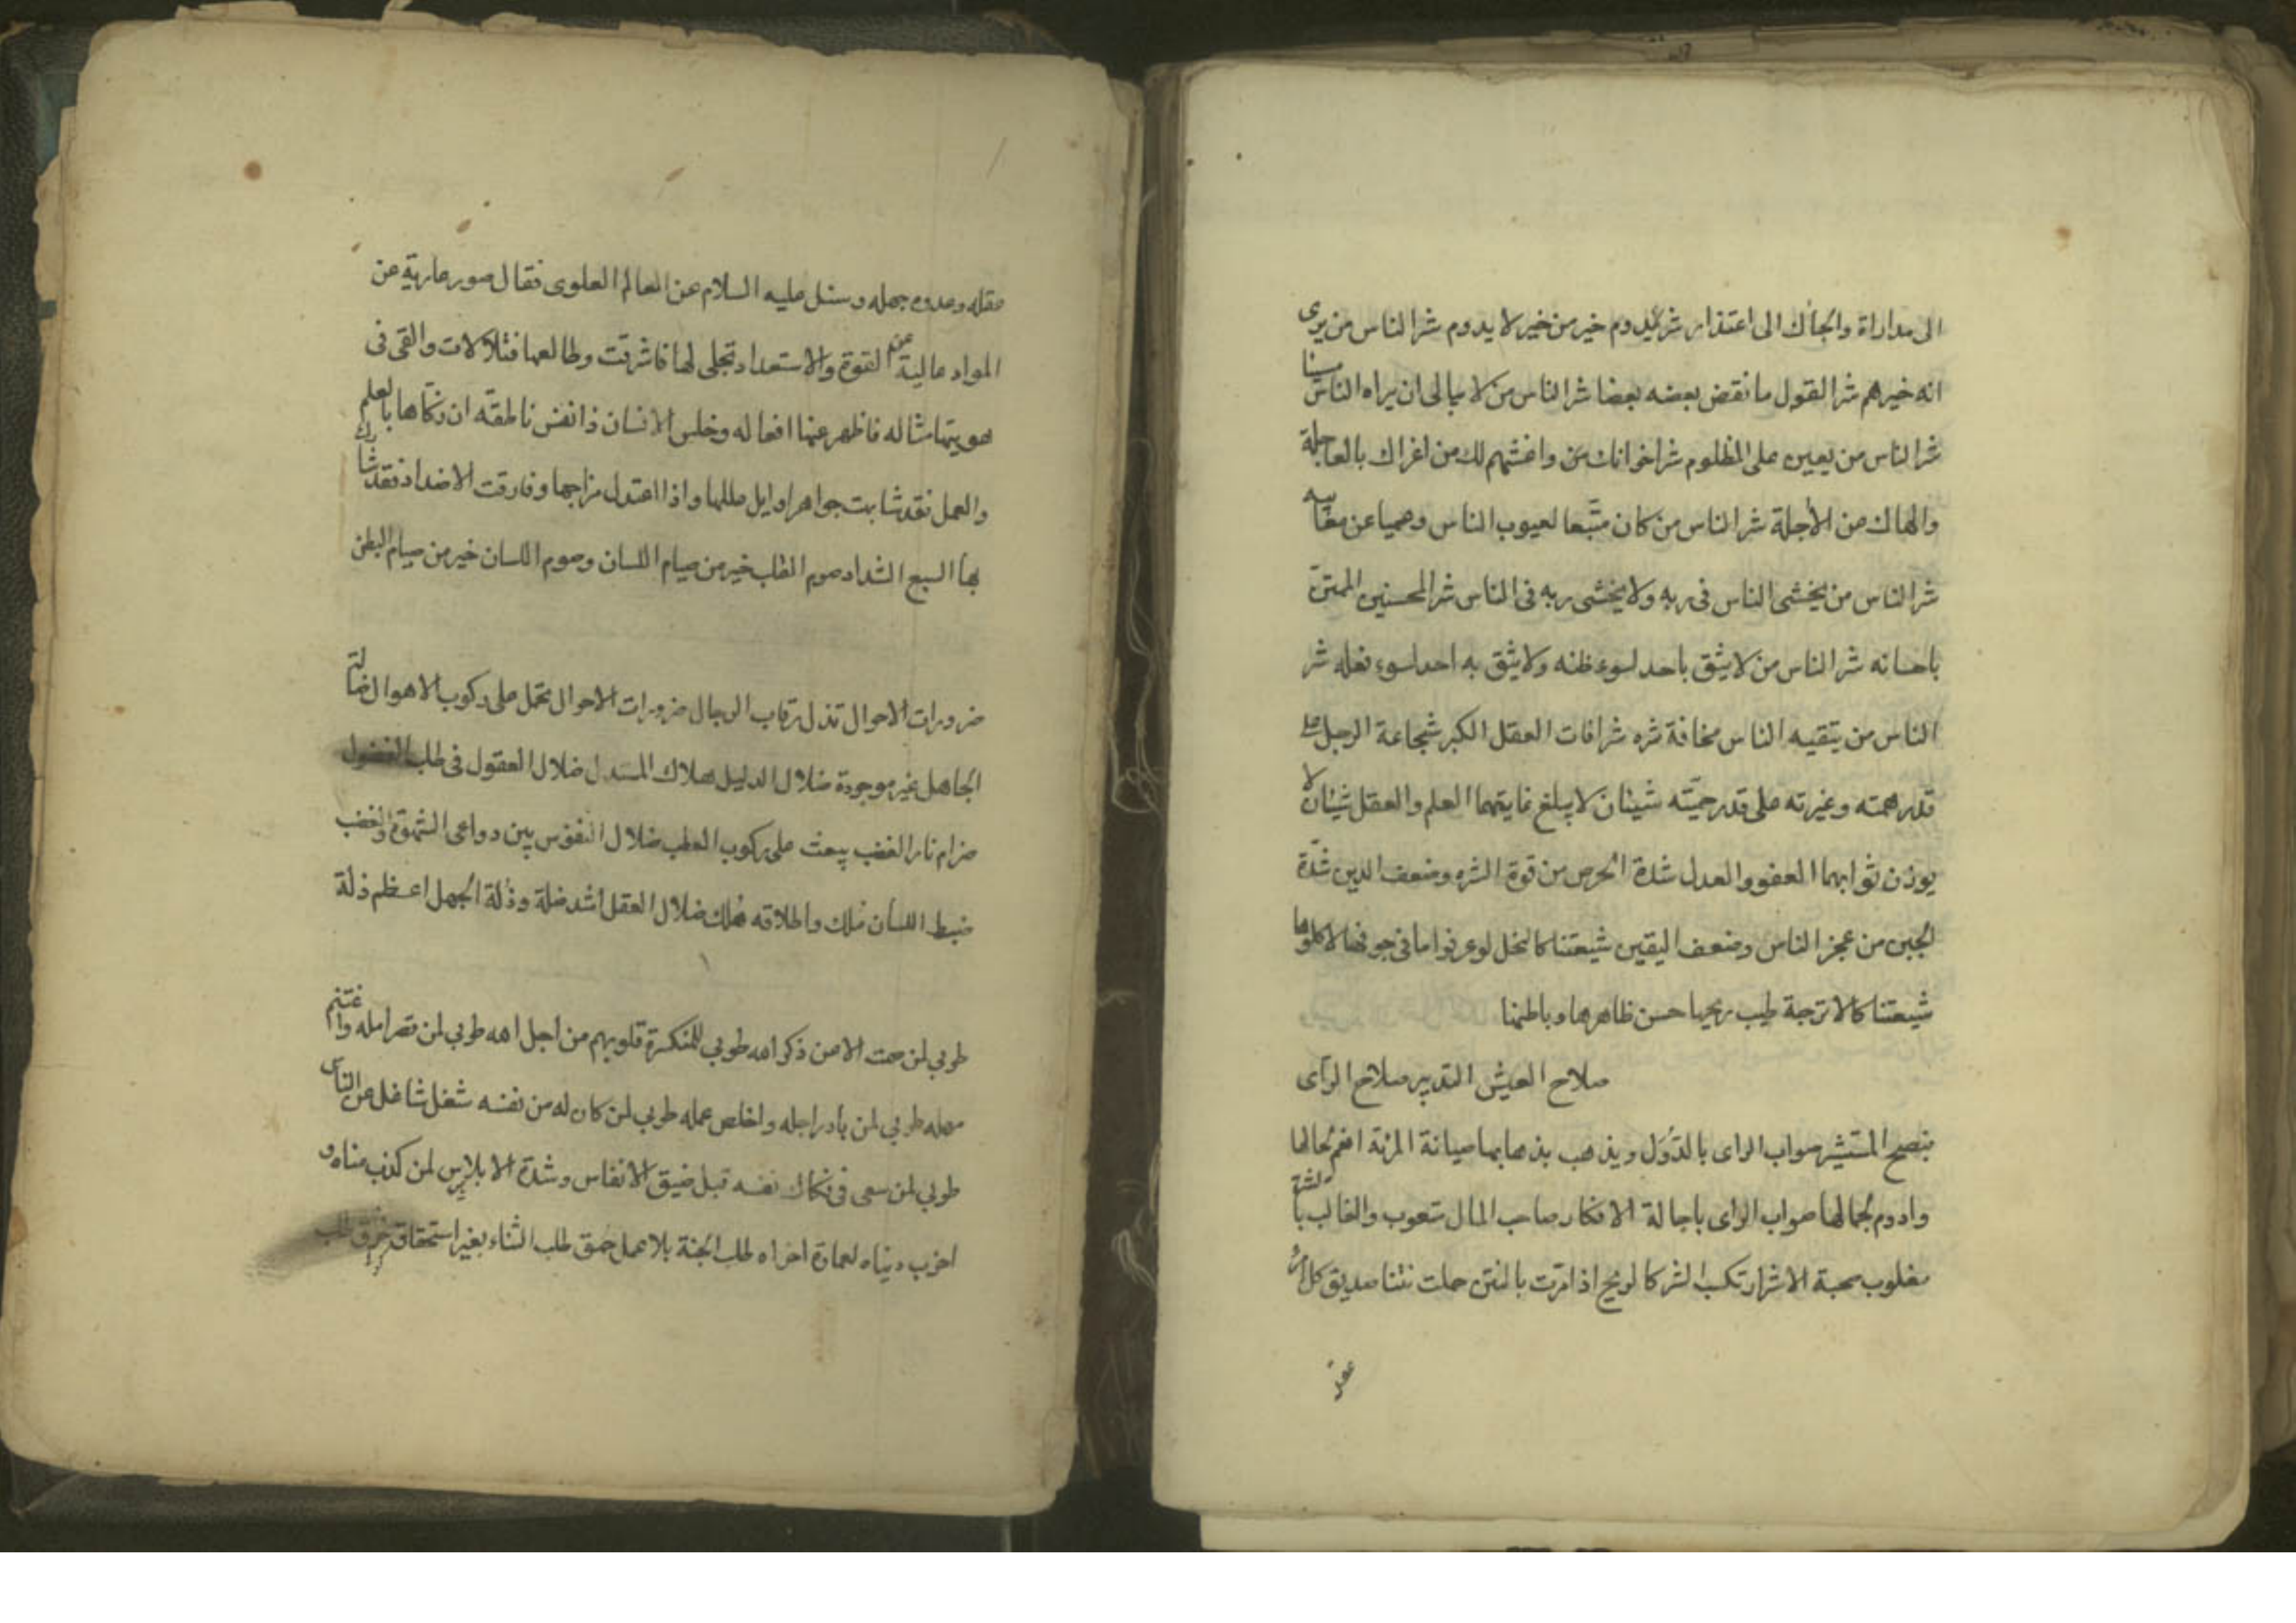 الى مداراة والجأك الى اعتذار شر لا يدوم خير من خير لا يدوم شر الناس من يرى
انه خيرهم شر القول ما نقض بعضه بعضا شر الناس من لا يبالى ان يراه الناس مسيئا
شر الناس من يعين على المظلوم شر اخوانك من واغشهم لك من اغراك بالعاجلة
والهاك عن الأجلة شر الناس من كان متبعا لعيوب الناس وعميا عن معايبه
شر الناس من يخشى الناس فى ربه ولا يخشى ربه فى الناس شر المحسنين الممتن
باحسانه شر الناس من لا يثق باحد لسوء ظنه ولا يثق به احد لسوء فعله شر
الناس من يتقيه الناس مخافة شره شر افات العقل الكبر شجاعة الرجل على
قدر همته وغيرته على قدر حميته شيئان لا يبلغ غايتهما العلم والعقل شيئان لا
يوزن ثوابهما العفو والعدل شدة الحرص من قوة الشره وضعف الدين شدة
الجبن من عجز الناس وضعف اليقين شيعتنا كالنحل لو عرفوا ما فى جوفها لاكلوها
شيعتنا كالاترجة طيب ريحها حسن ظاهرها وباطنها
صلاح العيش التدبير صلاح الرأى
بنصح المستشير صواب الراى بالدول ويذهب بذهابها صيانة المرئة انعم لحالها
وادوم لجمالها صواب الراى باجالة الافكار صاحب المال متعوب والغالب بالشر
مغلوب صحبة الاشرار تكسب الشر كالريح اذا مرت بالنتن حملت نتنا صديق كل امرء
عقله
عقله وعدوه جهله وسئل عليه السلام عن العالم العلوى فقال صور عارية عن
المواد عالية عن القوة والاستعداد تجلى لها فاشرقت وطالعها فتلألات والقى فى
هويتها مثاله فاظهر عنها افعاله وخلق الانسان ذا نفس ناطقه ان زكاها بالعلم
والعمل فقد شابهت جواهر اوايل عللها واذا اعتدل مزاجها وفارقت الاضداد فقد شارك
بها السبع الشداد صوم القلب خير من صيام اللسان وصوم اللسان خير من صيام البطن
ضرورات الاحوال تذل رقاب الرجال ضرورات الاحوال تحمل على ركوب الاهوال ضالة
الجاهل غير موجودة ضلال الدليل هلاك المستدل ضلال العقول فى طلب الفضول
ضرام نار الغضب يبعث على ركوب العطب ضلال النفوس بين دواعى الشهوة والغضب
ضبط اللسان ملك واطلاقه هلك ضلال العقل اشد ضلة وذلة الجهل اعظم ذلة
طوبى لمن صمت الا من ذكر الله طوبى للمنكسرة قلوبهم من اجل الله طوبى لمن قصر امله واغتنم
مهله طوبى لمن بادر اجله واخلص عمله طوبى لمن كان له من نفسه شغل شاغل عن الناس
طوبى لمن سعى فى فكاك نفسه قبل ضيق الانفاس وشدة الابلاس لمن كذب مناه و
اخرب دنياه لعمارة اخراه طلب الجنة بلا عمل حمق طلب الثناء بغير استحقاق خرق طلب